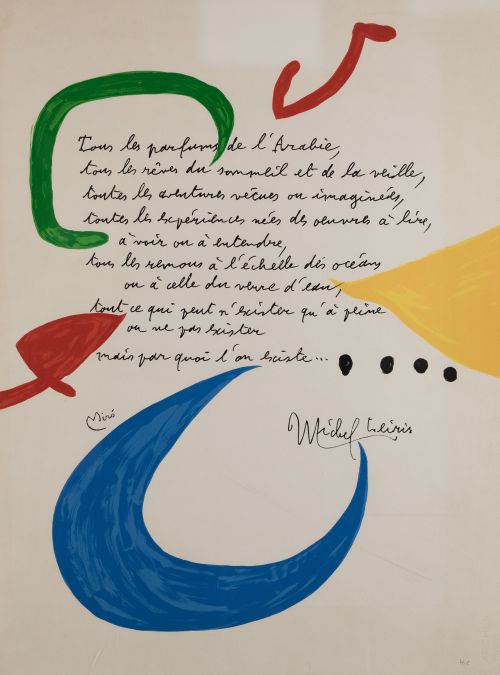 Tous les parfums de l'Arabie,
tous les rêves du sommeil et de la veille,
toutes les aventures vécues ou imaginées,
toutes les expériences nées des oeuvres à lire,
à voir ou à entendre,
tous les remous à l'échelle des océans
ou à celle du verre d'eau,
tout ce qui peut n'exister qu'à peine
ou ne pas exister
mais par quoi l'on existe...
Miró
Michel Leiris
H.C